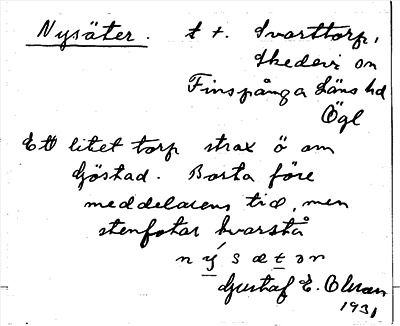 Nysäter. t t. Svarttorp,
Skedevi sn
Finspånga Läns hd
Ögl
Ett litet torp strax ö om
Göstad. Borta före
meddelarens tid, men
stenfotar kvarstå
n ý̲ s æ t̲ ə n
Gustaf E. Olsson
1931